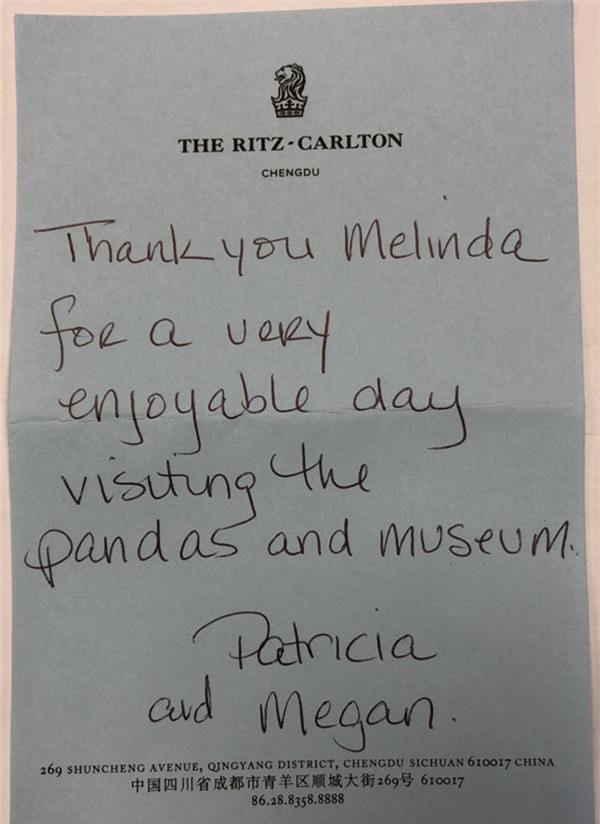 THE RITZ-CARLTON
CHENGDU
Thank you Melinda
for a very
enjoyable day
visiting the
pandas and museum.
Patricia
and Megan.
269 SHUNCHENG AVENUE, QINGYANG DISTRICT, CHENGDU SICHUAN 610017 CHINA
中国四川省成都市青羊区顺城大街269号 610017
86.28.8358.8888